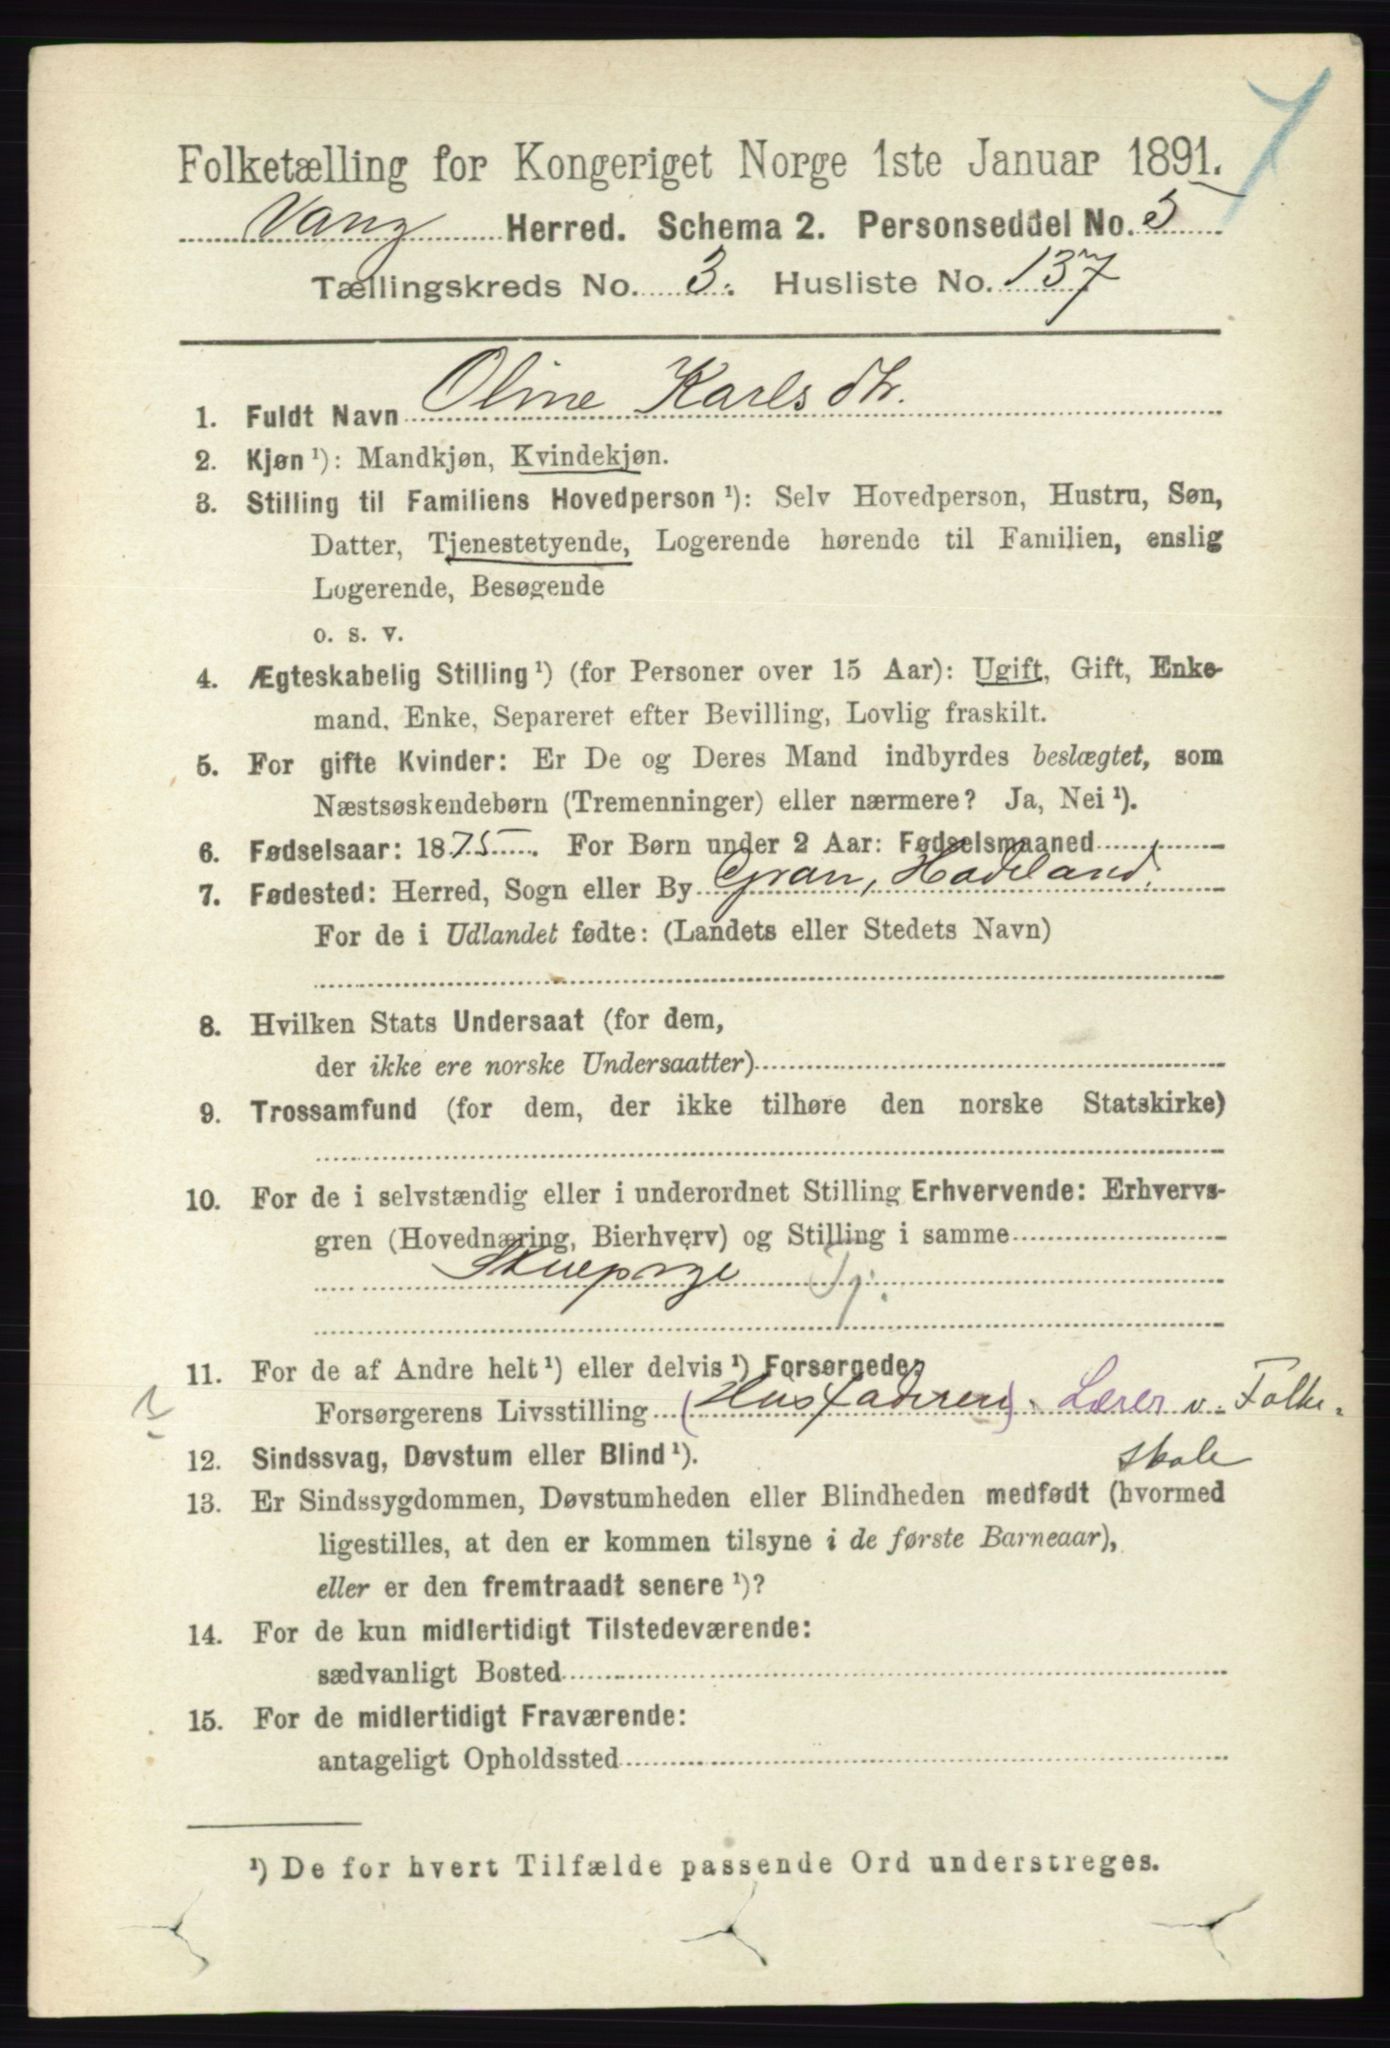 Folketælling for Kongeriget Norge 1ste Januar 1891.
Vang Herred. Schema 2. Personseddel No. 5
Tællingskreds No. 3. Husliste No. 137
1. Fuldt Navn Oline Karlsdtr.
2. Kjøn ¹): Mandkjøn, Kvindekjøn.
3. Stilling til Familiens Hovedperson ¹): Selv Hovedperson, Hustru, Søn,
Datter, Tjenestetyende, Logerende hørende til Familien, enslig
Logerende, Besøgende
o. s. v.
4. Ægteskabelig Stilling ¹) (for Personer over 15 Aar): Ugift, Gift, Enke-
mand, Enke, Separeret efter Bevilling, Lovlig fraskilt.
5. For gifte Kvinder: Er De og Deres Mand indbyrdes beslægtet, som
Næstsøskendebørn (Tremenninger) eller nærmere? Ja, Nei ¹).
6. Fødselsaar: 1875. For Børn under 2 Aar: Fødselsmaaned
7. Fødested: Herred, Sogn eller By Gran, Hadeland.
For de i Udlandet fødte: (Landets eller Stedets Navn)
8. Hvilken Stats Undersaat (for dem,
der ikke ere norske Undersaatter)
9. Trossamfund (for dem, der ikke tilhøre den norske Statskirke)
10. For de i selvstændig eller i underordnet Stilling Erhvervende: Erhvervs-
gren (Hovednæring, Bierhverv) og Stilling i samme
Stuepige Tj.
11. For de af Andre helt ¹) eller delvis ¹) Forsørgede:
Forsørgerens Livsstilling (Husfaderen). Lærer v. Folke-
skole
12. Sindssvag, Døvstum eller Blind ¹).
13. Er Sindssygdommen, Døvstumheden eller Blindheden medfødt (hvormed
ligestilles, at den er kommen tilsyne i de første Barneaar),
eller er den fremtraadt senere ¹)?
14. For de kun midlertidigt Tilstedeværende:
sædvanligt Bosted
15. For de midlertidigt Fraværende:
antageligt Opholdssted
¹) De for hvert Tilfælde passende Ord understreges.